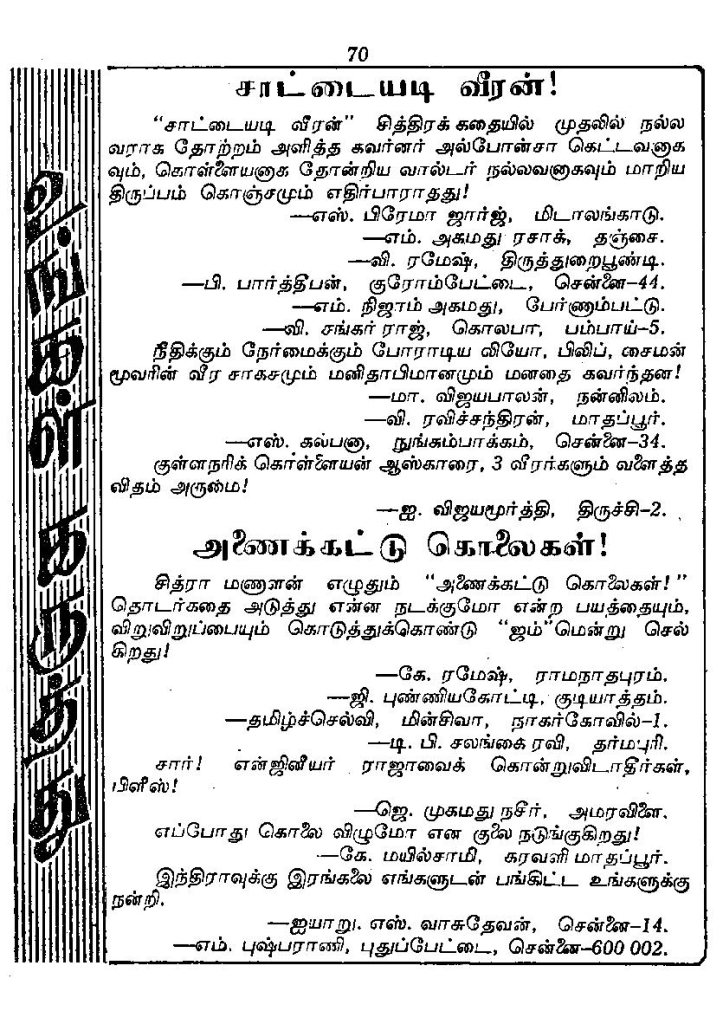 70
உங்கள் கருத்து
சாட்டையடி வீரன்!
“சாட்டையடி வீரன்” சித்திரக்கதையில் முதலில் நல்ல
வராக தோற்றம் அளித்த கவர்னர் அல்போன்சா கெட்டவனாக
வும், கொள்ளையனாக தோன்றிய வால்டர் நல்லவனாகவும் மாறிய
திருப்பம் கொஞ்சமும் எதிர்பாராதது!
—எஸ். பிரேமா ஜார்ஜ், மிடாலங்காடு.
—எம். அகமது ரசாக், தஞ்சை.
—வி. ரமேஷ், திருத்துறைபூண்டி.
—பி. பார்த்தீபன், குரோம்பேட்டை, சென்னை-44.
—எம். நிஜாம் அகமது, பேர்ணாம்பட்டு.
—வி. சங்கர் ராஜ், கொலபா, பம்பாய்-5.
நீதிக்கும் நேர்மைக்கும் போராடிய லியோ, பிலிப், சைமன்
மூவரின் வீர சாகசமும் மனிதாபிமானமும் மனதை கவர்ந்தன!
—மா. விஜயபாலன், நன்னிலம்.
—வி. ரவிச்சந்திரன், மாதப்பூர்.
—எஸ். கல்பனா, நுங்கம்பாக்கம், சென்னை-34.
குள்ளநரிக் கொள்ளையன் ஆஸ்காரை, 3 வீரர்களும் வளைத்த
விதம் அருமை!
—ஐ. விஜயமூர்த்தி, திருச்சி-2.
அணைக்கட்டு கொலைகள்!
சித்ரா மணாளன் எழுதும் “அணைக்கட்டு கொலைகள்!”
தொடர்கதை அடுத்து என்ன நடக்குமோ என்ற பயத்தையும்,
விறுவிறுப்பையும் கொடுத்துக்கொண்டு “ஜம்”மென்று செல்
கிறது!
—கே. ரமேஷ், ராமநாதபுரம்.
—ஜி. புண்ணியகோட்டி, குடியாத்தம்.
—தமிழ்ச்செல்வி, மின்சிவா, நாகர்கோவில்-1.
—டி. பி. சலங்கை ரவி, தர்மபுரி.
சார்! என்ஜினீயர் ராஜாவைக் கொன்றுவிடாதீர்கள்,
பிளீஸ்!
—ஜெ. முகமது நசீர், அமரவிளை.
எப்போது கொலை விழுமோ என குலை நடுங்குகிறது!
—கே. மயில்சாமி, கரவளி மாதப்பூர்.
இந்திராவுக்கு இரங்கலை எங்களுடன் பங்கிட்ட உங்களுக்கு
நன்றி.
—ஐயாறு. எஸ். வாசுதேவன், சென்னை-14.
—எம். புஷ்பராணி, புதுப்பேட்டை, சென்னை-600 002.